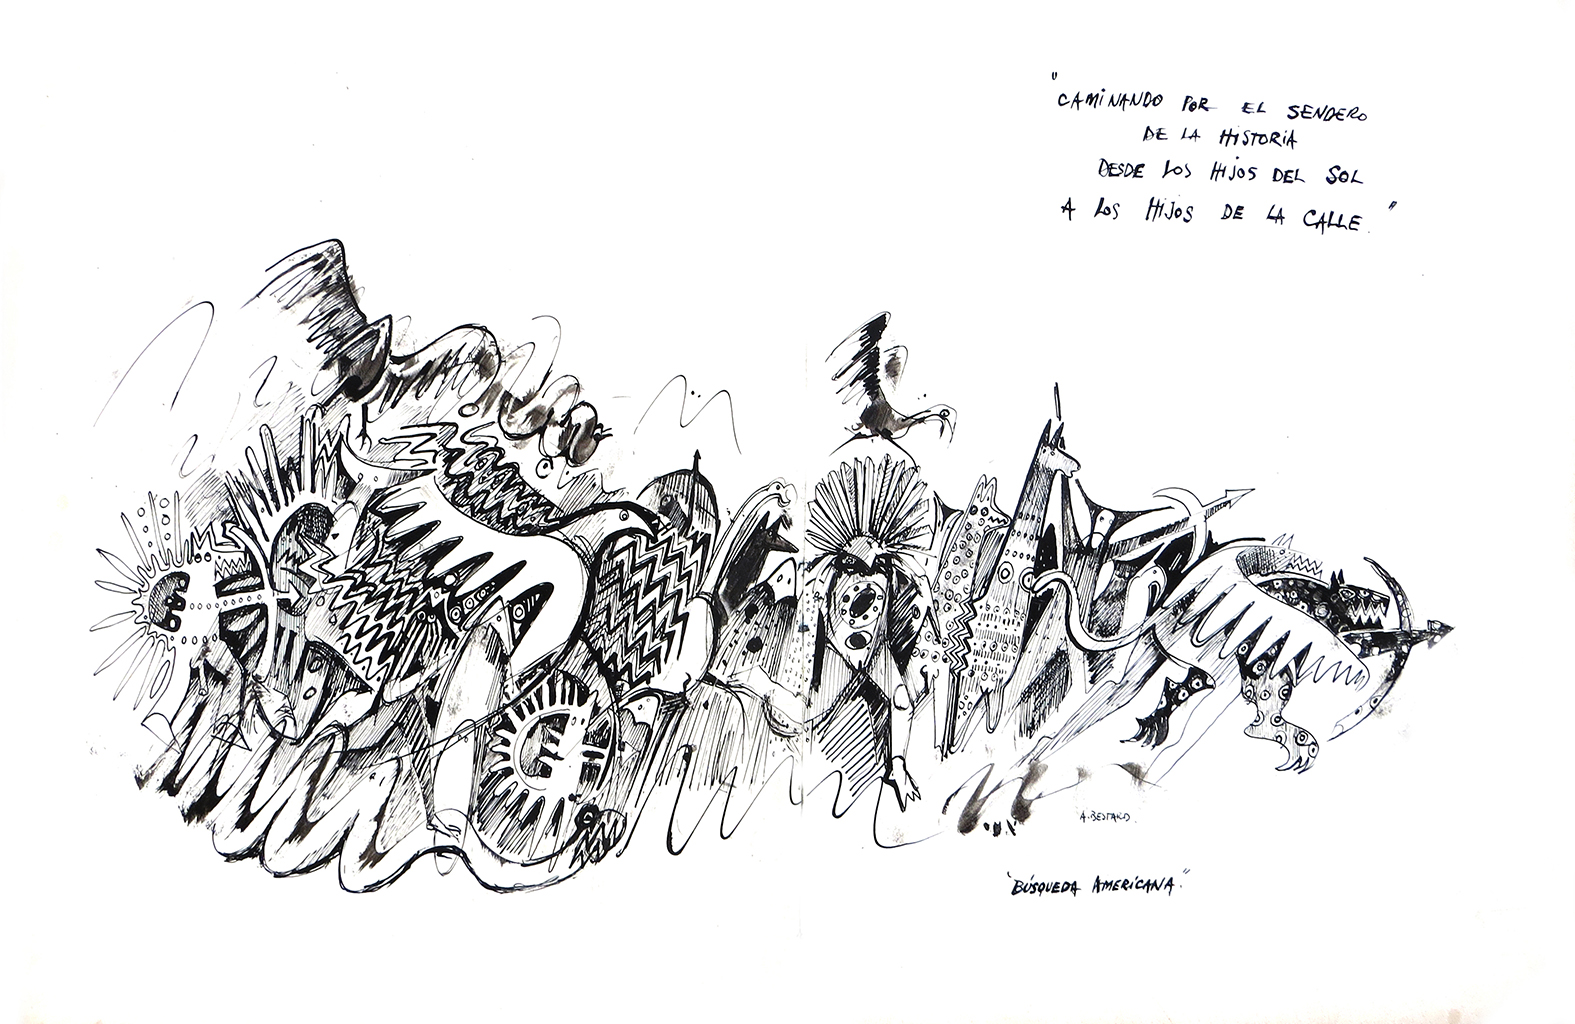 "CAMINANDO POR EL SENDERO
DE LA HISTORIA
DESDE LOS HIJOS DEL SOL
A LOS HIJOS DE LA CALLE."
A. BESTARD.
"BÚSQUEDA AMERICANA."